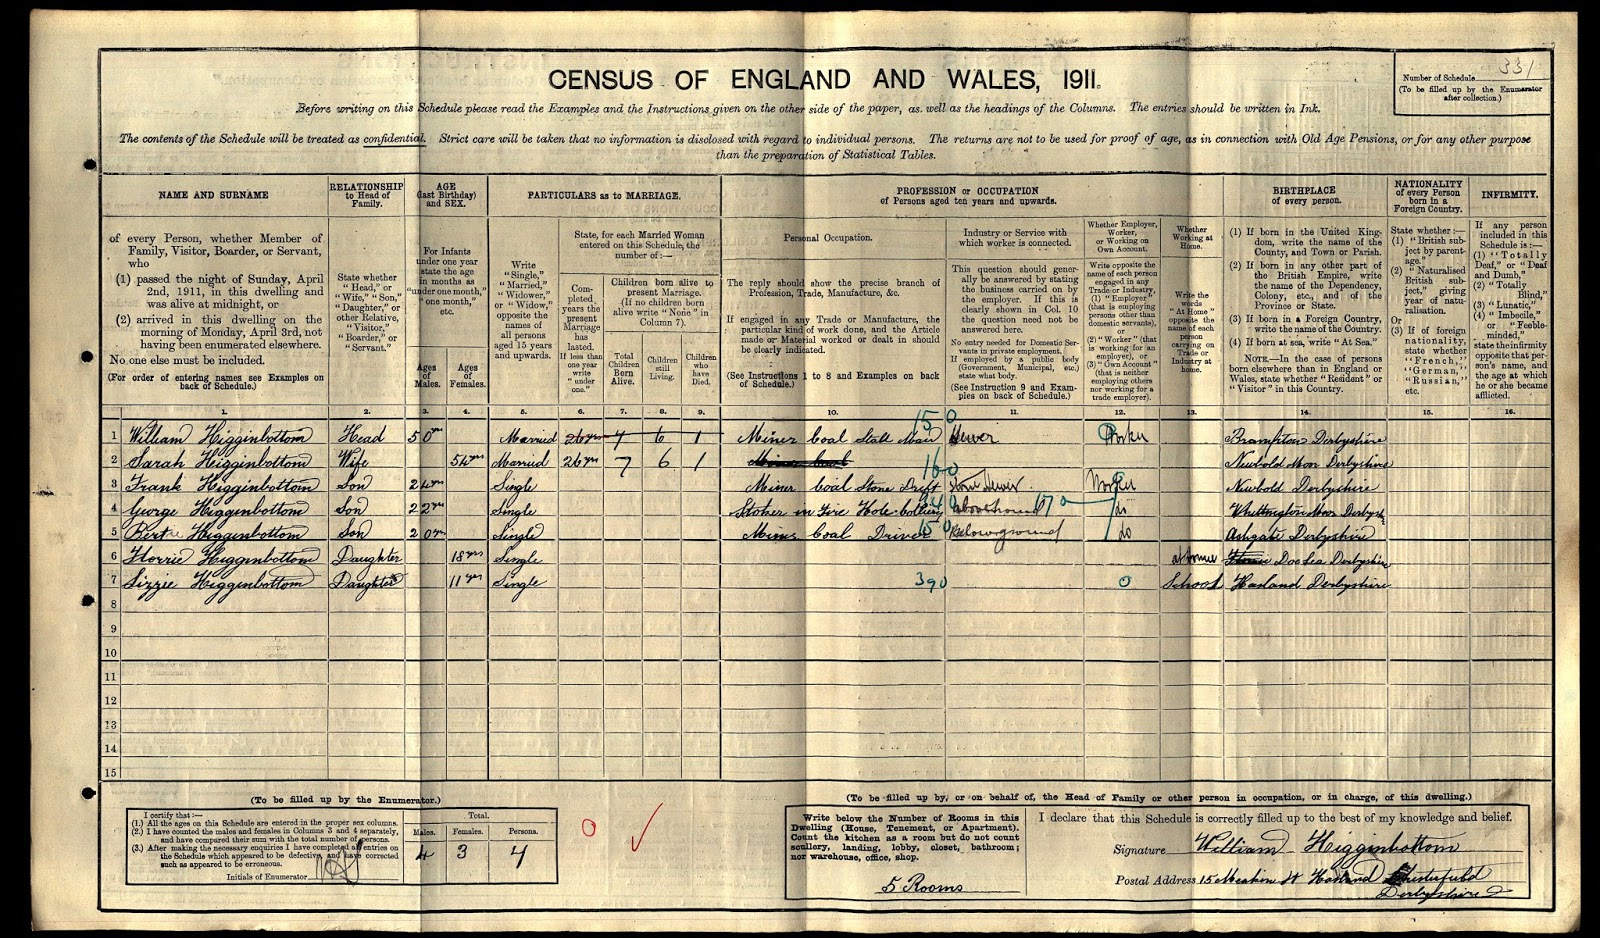 CENSUS OF ENGLAND AND WALES, 1911.
Number of Schedule 331
(To be filled up by the Enumerator
after collection.)
Before writing on this Schedule please read the Examples and the Instructions given on the other side of the paper, as well as the headings of the Columns. The entries should be written in Ink.
The contents of the Schedule will be treated as confidential. Strict care will be taken that no information is disclosed with regard to individual persons. The returns are not to be used for proof of age, as in connection with Old Age Pensions, or for any other purpose
than the preparation of Statistical Tables.
NAME AND SURNAME
of every Person, whether Member of
Family, Visitor, Boarder, or Servant,
who
(1) passed the night of Sunday, April
2nd, 1911, in this dwelling and
was alive at midnight, or
(2) arrived in this dwelling on the
morning of Monday, April 3rd, not
having been enumerated elsewhere.
No one else must be included.
(For order of entering names see Examples on
back of Schedule.)
RELATIONSHIP
to Head of
Family.
State whether
"Head," or
"Wife," "Son,"
"Daughter," or
other Relative,
"Visitor,"
"Boarder," or
"Servant."
AGE
(last Birthday)
and SEX.
For Infants
under one year
state the age
in months as
"under one month,"
"one month,"
etc.
Ages
of
Males.
Ages
of
Females.
PARTICULARS as to MARRIAGE.
Write
"Single,"
"Married,"
"Widower,"
or "Widow,"
opposite the
names of
all persons
aged 15 years
and upwards.
State, for each Married Woman
entered on this Schedule, the
number of:—
Completed
years the
present
Marriage
has
lasted.
If less than
one year
write
"under
one."
Children born alive to
present Marriage.
(If no children born
alive write "None" in
Column 7).
Total
Children
Born
Alive.
Children
still
Living.
Children
who
have
Died.
PROFESSION or OCCUPATION
of Persons aged ten years and upwards.
Personal Occupation.
The reply should show the precise branch of
Profession, Trade, Manufacture, &c.
If engaged in any Trade or Manufacture, the
particular kind of work done, and the Article
made or Material worked or dealt in should
be clearly indicated.
(See Instructions 1 to 8 and Examples on back
of Schedule.)
Industry or Service with
which worker is connected.
This question should generally
be answered by stating
the business carried on by
the employer. If this is
clearly shown in Col. 10
the question need not be
answered here.
No entry needed for Domestic Servants
in private employment.
If employed by a public body
(Government, Municipal, etc.)
state what body.
(See Instruction 9 and Examples
on back of Schedule.)
Whether Employer,
Worker,
or Working on
Own Account.
Write opposite the
name of each person
engaged in any
Trade or Industry,
(1) "Employer"
(that is employing
persons other than
domestic servants),
or
(2) "Worker" (that
is working for an
employer), or
(3) "Own Account"
(that is neither
employing others
nor working for a
trade employer).
Whether
Working at
Home.
Write the
words
"At Home"
opposite the
name of each
person
carrying on
Trade or
Industry at
home.
BIRTHPLACE
of every person.
(1) If born in the United Kingdom,
write the name of the
County, and Town or Parish.
(2) If born in any other part of
the British Empire, write
the name of the Dependency,
Colony, etc., and of the
Province or State.
(3) If born in a Foreign Country,
write the name of the Country.
(4) If born at sea, write "At Sea."
NOTE.—In the case of persons
born elsewhere than in England or
Wales, state whether "Resident" or
"Visitor" in this Country.
NATIONALITY
of every Person
born in a
Foreign Country.
State whether:—
(1) "British subject
by parentage."
(2) "Naturalised
British subject,"
giving
year of naturalisation.
Or
(3) If of foreign
nationality,
state whether
"French,"
"German,"
"Russian,"
etc.
INFIRMITY.
If any person
included in this
Schedule is:—
(1) "Totally
Deaf," or "Deaf
and Dumb,"
(2) "Totally
Blind,"
(3) "Lunatic,"
(4) "Imbecile,"
or "Feeble-minded,"
state the infirmity
opposite that person's
name, and
the age at which
he or she became
afflicted.
1. 2. 3. 4. 5. 6. 7. 8. 9. 10. 11. 12. 13. 14. 15. 16.
150
1 William Higginbottom Head 50yrs Married 26yrs 7 6 1 Miner Coal Stall Man Hewer Worker Brampton Derbyshire
2 Sarah Higginbottom Wife 54yrs Married 26yrs 7 6 1 Newbold Moor Derbyshire
160
3 Frank Higginbottom Son 24yrs Single Miner Coal Stone Drift Stone Hewer Worker Newbold Derbyshire
4 George Higginbottom Son 22yrs Single Stoker in Fire Hole Colliery aboveground 170 do Whittington Moor Derbysh
5 Bertie Higginbottom Son 20yrs Single Mines Coal Driver 150 Belowground do Ashgate Derbyshire
6 Florrie Higginbottom Daughter 18yrs Single at home Doe Lea Derbyshire
7 Lizzie Higginbottom Daughter 11yrs Single 390 0 School Hasland Derbyshire
8
9
10
11
12
13
14
15
(To be filled up by the Enumerator.)
I certify that:—
(1.) All the ages on this Schedule are entered in the proper sex columns.
(2.) I have counted the males and females in Columns 3 and 4 separately,
and have compared their sum with the total number of persons.
(3.) After making the necessary enquiries I have completed all entries on
the Schedule which appeared to be defective, and have corrected
such as appeared to be erroneous.
Initials of Enumerator
Total.
Males. Females. Persons.
4 3 7
0
(To be filled up by, or on behalf of, the Head of Family or other person in occupation, or in charge, of this dwelling.)
Write below the Number of Rooms in this
Dwelling (House, Tenement, or Apartment).
Count the kitchen as a room but do not count
scullery, landing, lobby, closet, bathroom;
nor warehouse, office, shop.
5 Rooms
I declare that this Schedule is correctly filled up to the best of my knowledge and belief.
Signature William Higginbottom
Postal Address 15 Meakin St Hasland Chesterfield
Derbyshire